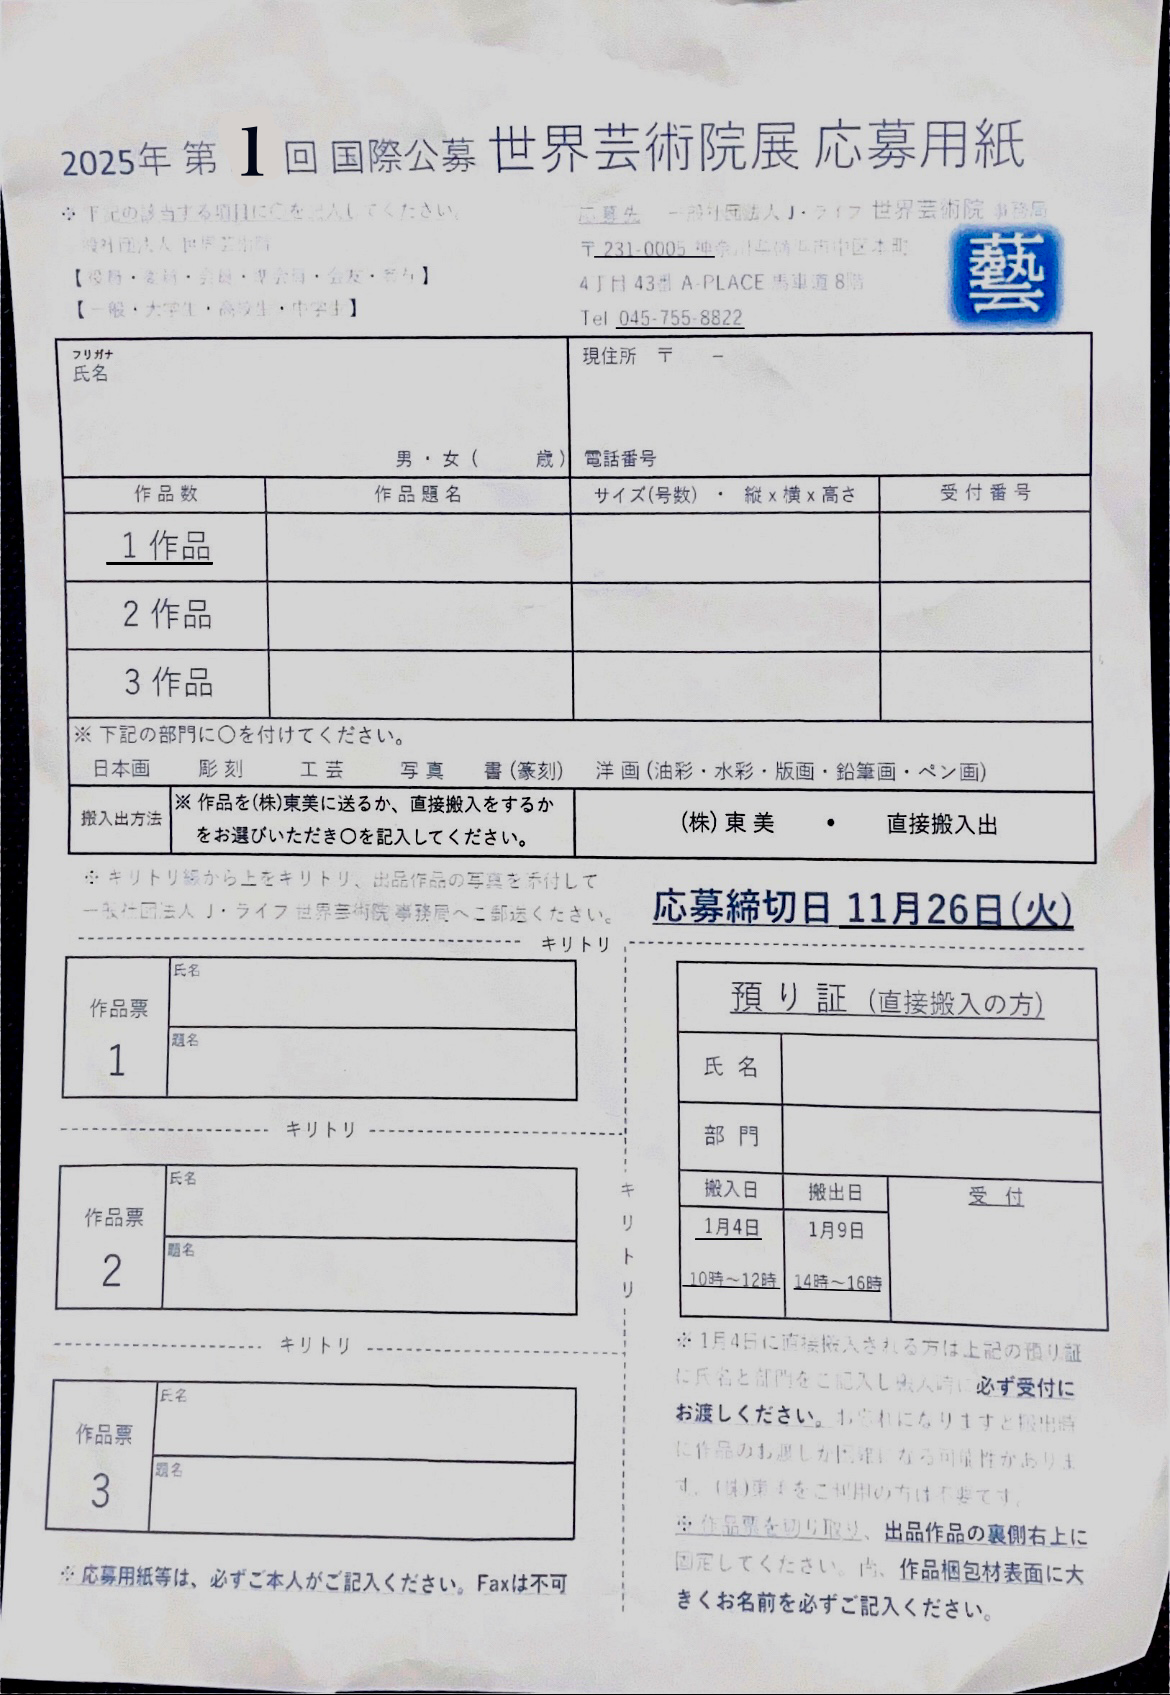 2025年 第 1 回 国際公募 世界芸術院展 応募用紙
※ 下記の該当する項目に〇を記入してください。
一般社団法人 世界芸術院
【役員・委員・会員・準会員・会友・寄与】
【一般・大学生・高校生・中学生】
応募先 一般社団法人 J・ライフ 世界芸術院 事務局
〒231-0005 神奈川県横浜市中区本町
4丁目 43番 A-PLACE 馬車道 8階
Tel 045-755-8822
藝
フリガナ
氏名
男・女( 歳)
現住所 〒 −
電話番号
作品数 作品題名 サイズ(号数)・ 縦x横x高さ 受付番号
1 作品
2 作品
3 作品
※ 下記の部門に〇を付けてください。
日本画 彫刻 工芸 写真 書(篆刻) 洋画(油彩・水彩・版画・鉛筆画・ペン画)
搬入出方法
※ 作品を(株)東美に送るか、直接搬入をするか
をお選びいただき〇を記入してください。
(株)東美 ・ 直接搬入出
※ キリトリ線から上をキリトリ、出品作品の写真を添付して
一般社団法人 J・ライフ 世界芸術院 事務局へご郵送ください。
応募締切日 11月26日(火)
キリトリ
作品票
1
氏名
題名
キリトリ
作品票
2
氏名
題名
キリトリ
作品票
3
氏名
題名
※ 応募用紙等は、必ずご本人がご記入ください。Faxは不可
キリトリ
預り証(直接搬入の方)
氏名
部門
搬入日 搬出日 受付
1月4日 1月9日
10時〜12時 14時〜16時
※ 1月4日に直接搬入される方は上記の預り証
に氏名と部門をご記入し搬入時に必ず受付に
お渡しください。お忘れになりますと搬出時
に作品のお渡しが困難になる可能性がありま
す。(株)東美をご利用の方は不要です。
※ 作品票を切り取り、出品作品の裏側右上に
固定してください。尚、作品梱包材表面に大
きくお名前を必ずご記入ください。